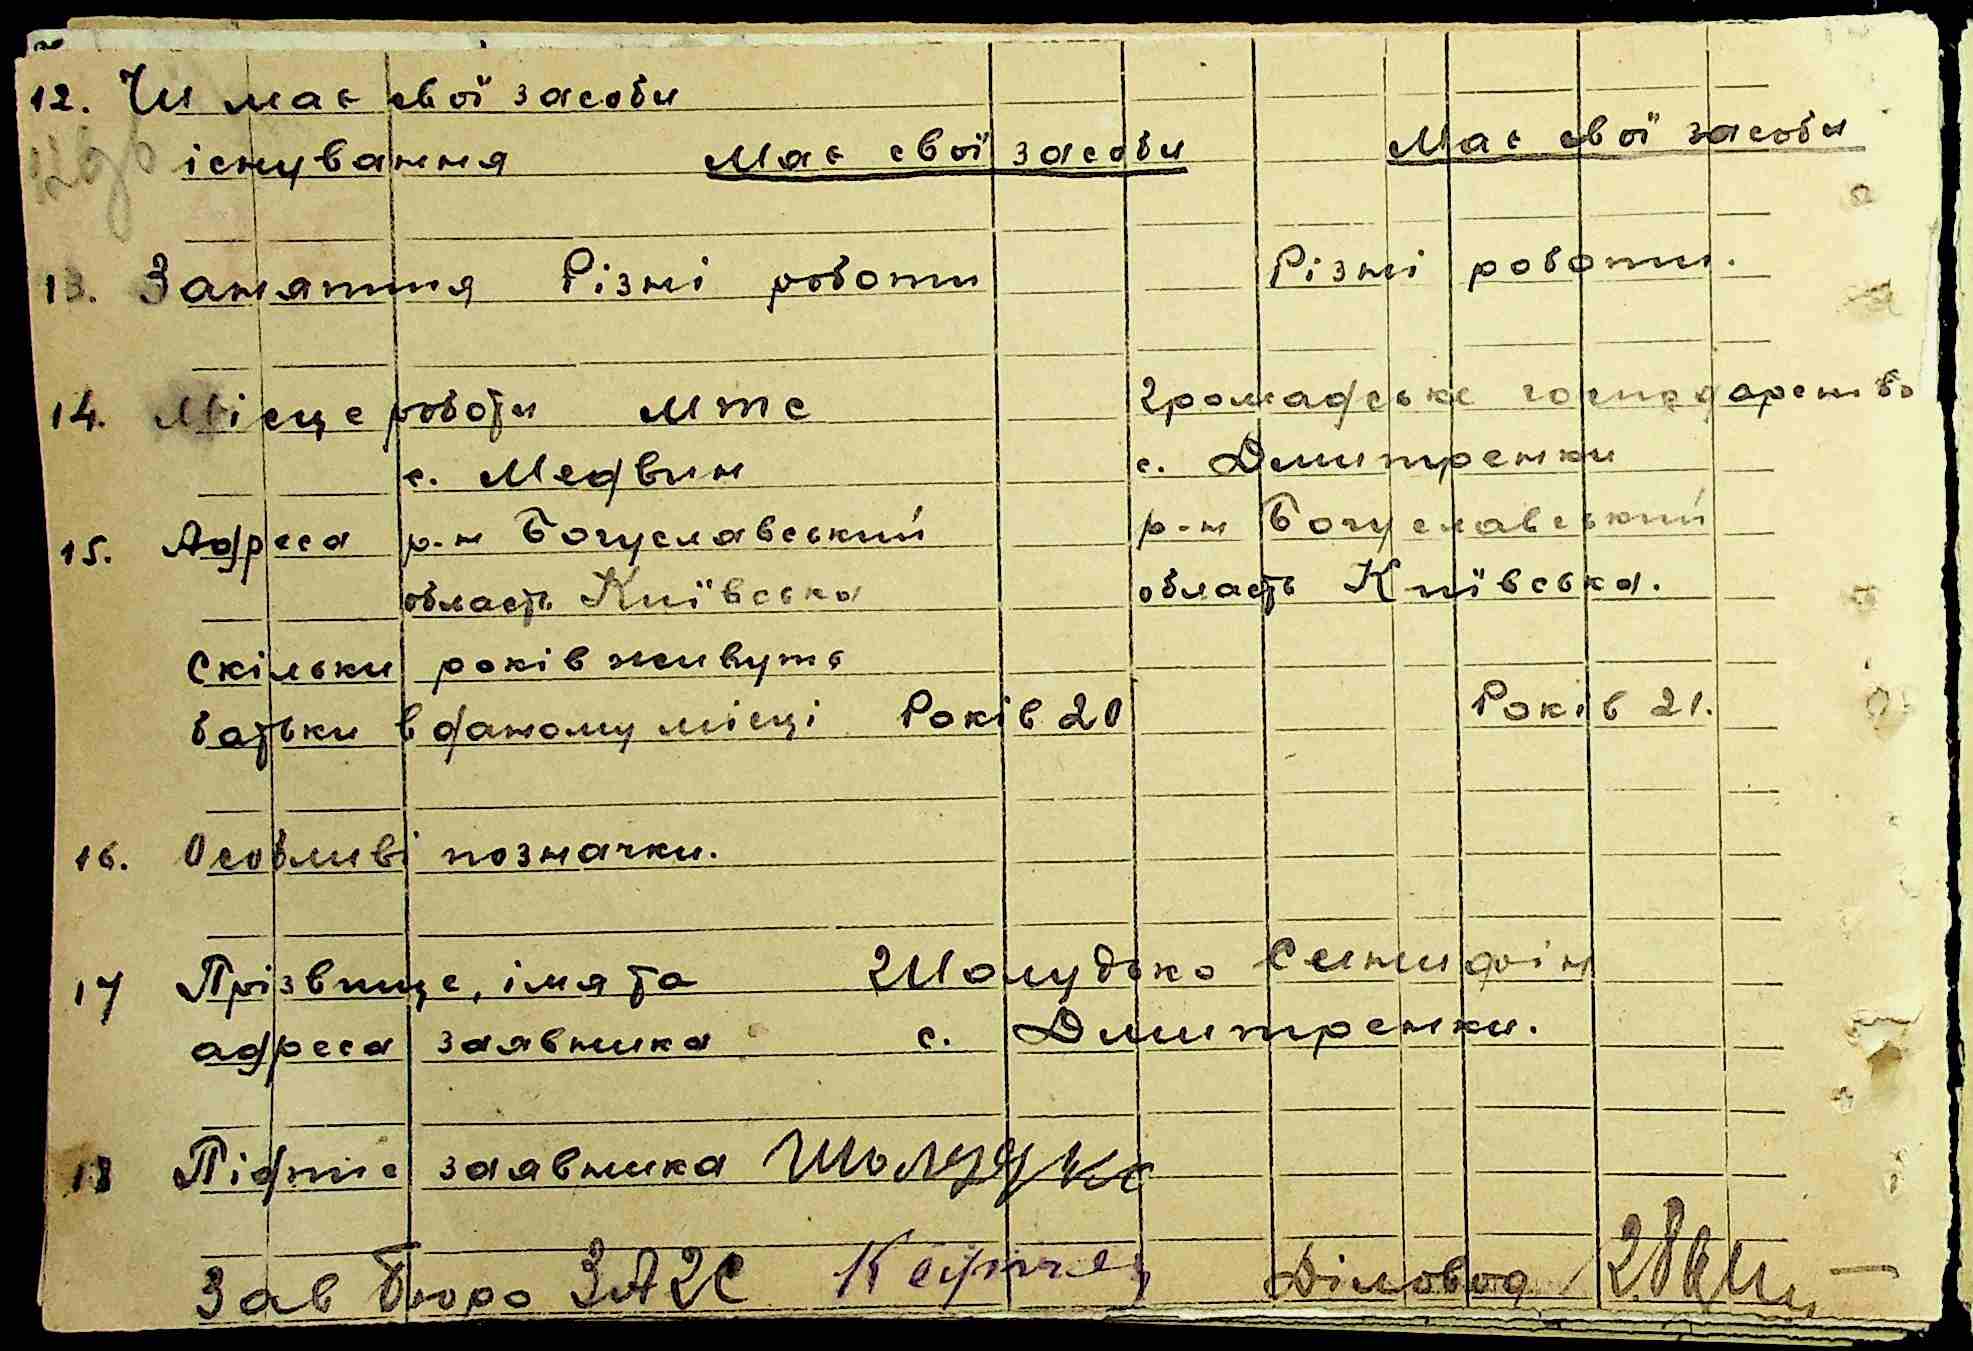 12. Чи має свої засоби
існування Має свої засоби Має свої засоби
13. Заняття Різні роботи Різні роботи.
14. Місце роботи МТС Громадське господарство
с. Медвин с. Дмитренки
15. Адреса р-н Богуславський р-н Богуславський
область Київська область Київська.
Скільки років живуть
батьки в даному місці Років 20 Років 21.
16. Особливі позначки.
17 Прізвище, імя та Шолудько
адреса заявника с. Дмитренки.
18 Підпис заявника Шолудько
Зав Бюро ЗАГС Діловод